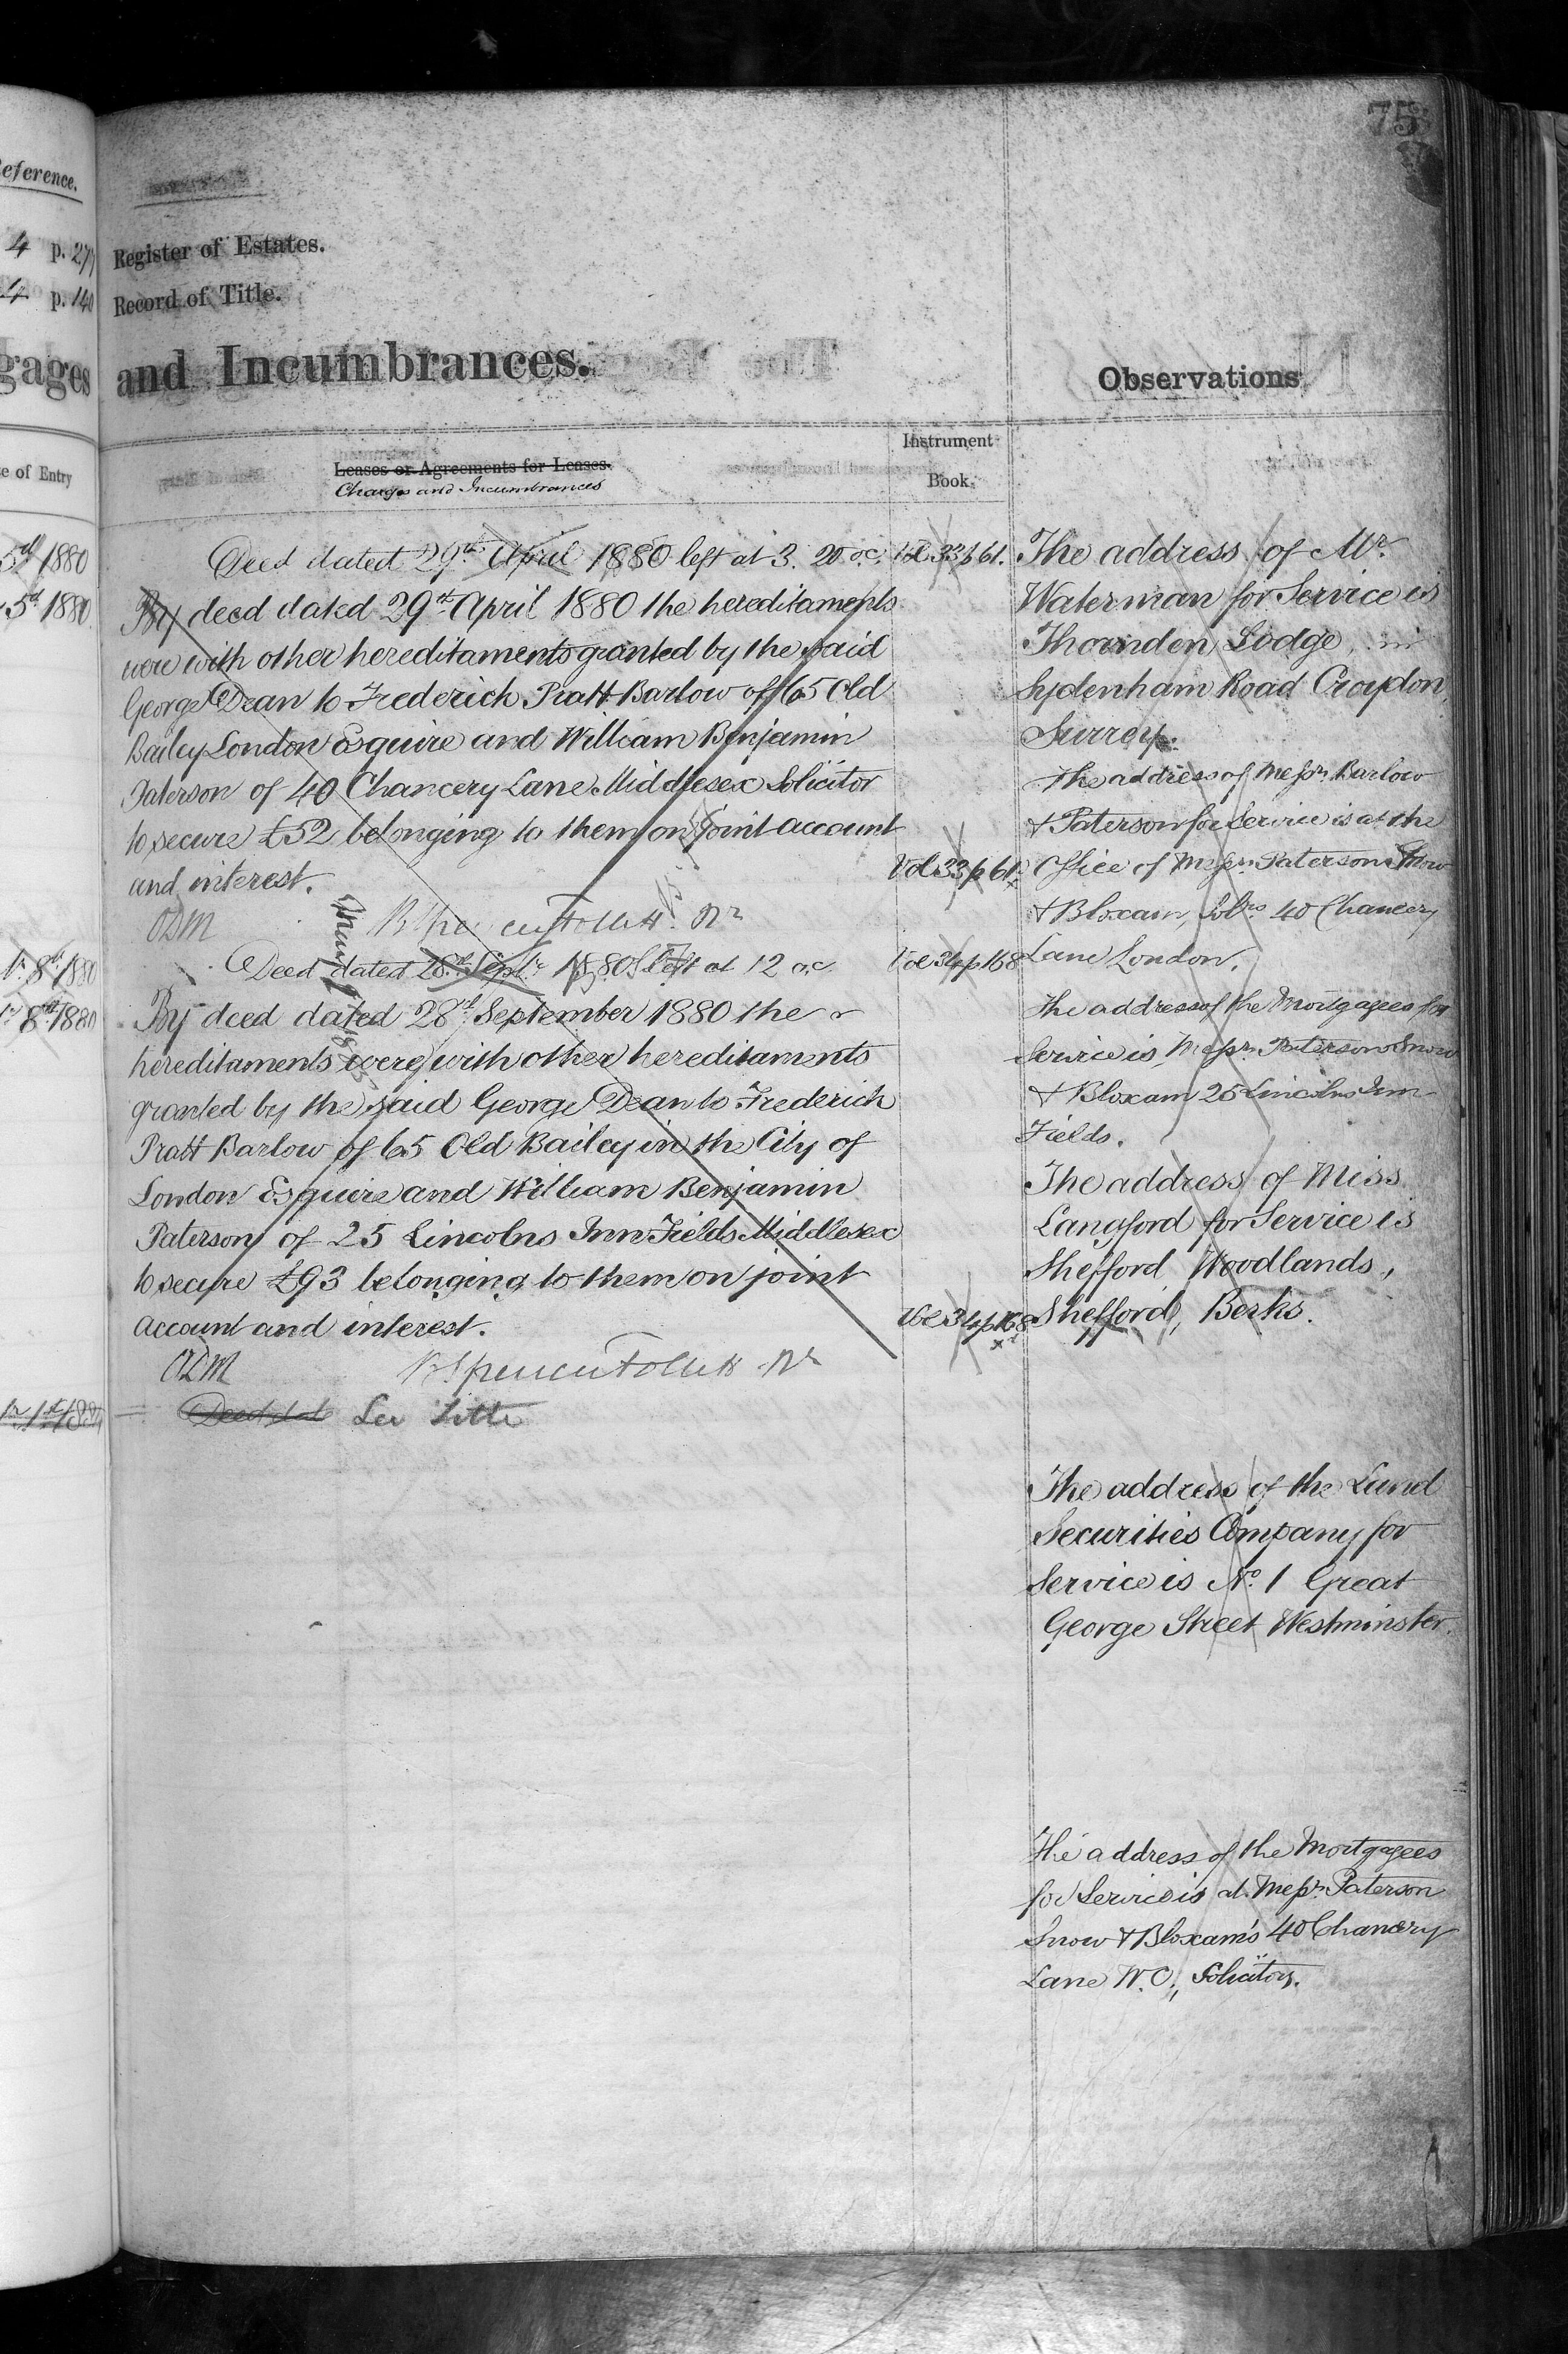 75
Reference.
4 p. 279
4 p. 140
gages
e of Entry
5th 1880
5th 1880
8th 1880
8th 1880
Register of Estates.
Record of Title.
and Incumbrances.
Leases or Agreements for Leases.
Charges and Incumbrances
Deed dated 29th April 1880 left at 3. 20 o.c.
By deed dated 29th April 1880 the hereditaments
were with other hereditaments granted by the said
George Dean to Frederich Pratt Barlow of 65 Old
Bailey London Esquire and William Benjamin
Paterson of 40 Chancery Lane Middlesex Solicitor
to secure £52 belonging to them on joint account
and interest.
Deed dated 28th Septr 1880 left at 12 o.c.
By deed dated 28th September 1880 the
hereditaments were with other hereditaments
granted by the said George Dean to Frederich
Pratt Barlow of 65 Old Bailey in the City of
London Esquire and William Benjamin
Paterson of 25 Lincolns Inn Fields Middlesex
to secure £93 belonging to them on joint
account and interest.
See Title
Instrument
Book.
Vol 33 p 61.
Vol 33 p 61
Vol 34 p 168
Vol 34 p 168
Observations
The address of Mr.
Waterman for Service is
Thornden Lodge,
Sydenham Road Croydon
Surrey.
The address of Messrs Barlow
& Paterson for Service is at the
Office of Messrs Paterson Snow
& Bloxam, Solrs 40 Chancery
Lane London.
The address of the Mortgagees for
Service is Messrs Paterson Snow
& Bloxam 25 Lincolns Inn
Fields.
The address of Miss
Langford for Service is
Shefford Woodlands,
Shefford, Berks.
The address of the Land
Securities Company for
Service is No. 1 Great
George Street Westminster.
The address of the Mortgagees
for Service is at Messrs Paterson
Snow & Bloxam's 40 Chancery
Lane W.C., Solicitors.